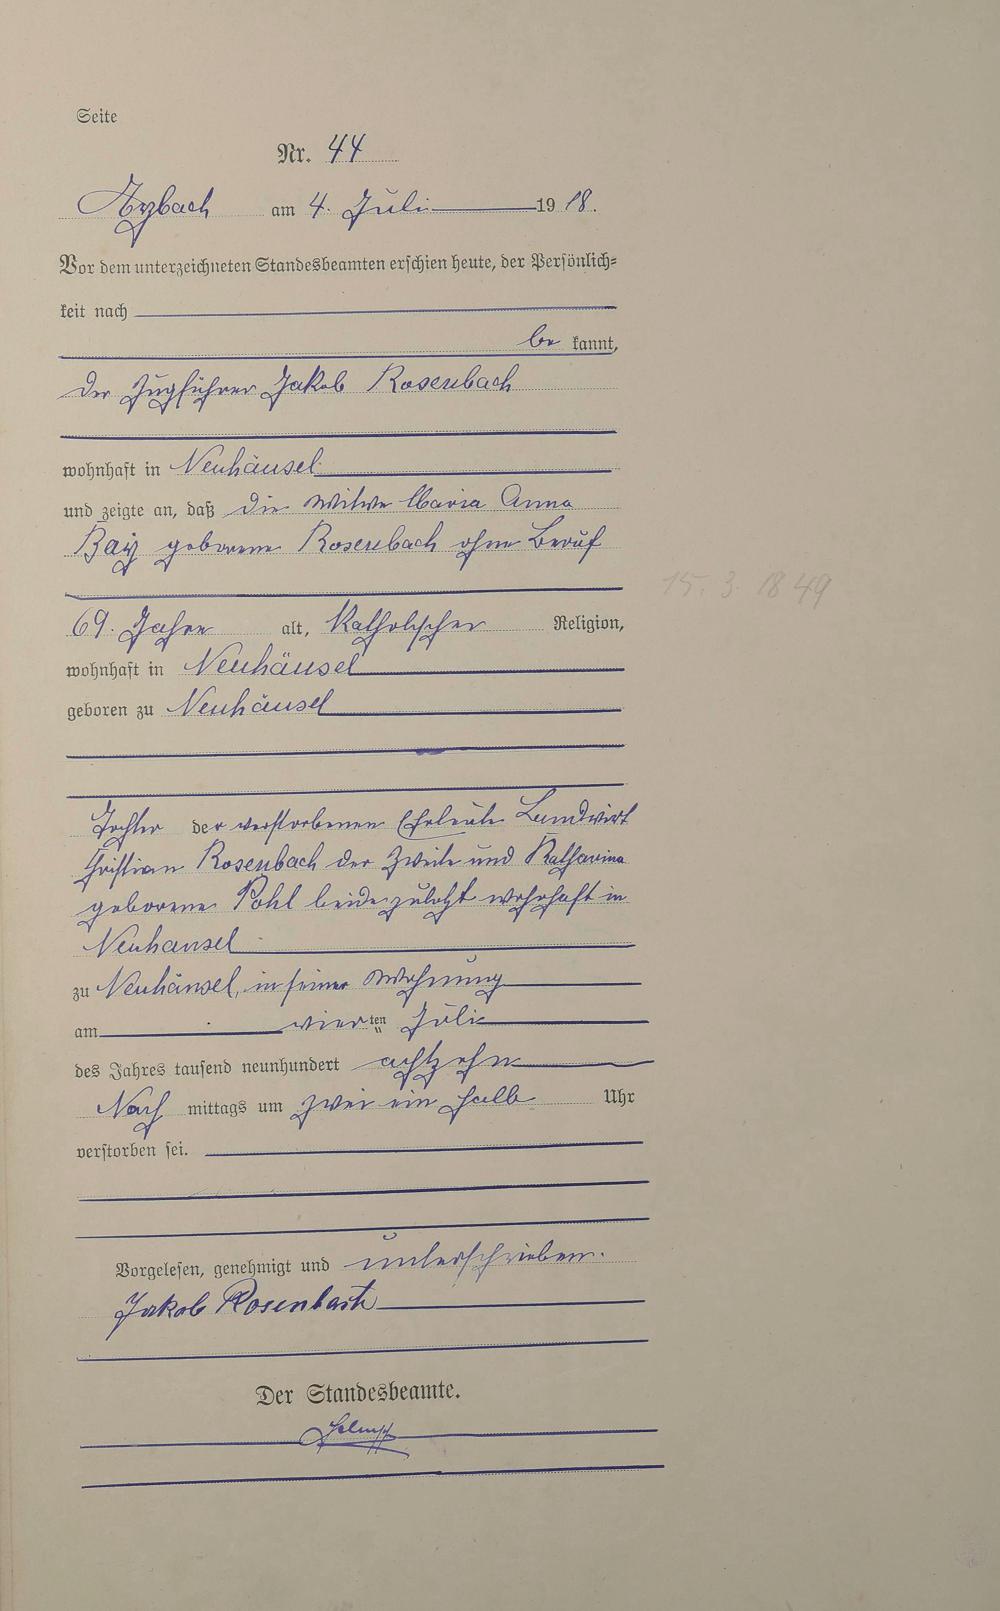 Seite
Nr. 44
Arzbach am 4. Juli 19 18.
Vor dem unterzeichneten Standesbeamten erschien heute, der Persönlich-
keit nach
be kannt,
der Zugführer Jakob Rosenbach
wohnhaft in Neuhäusel
und zeigte an, daß die Witwe Maria Anna
Bay geborene Rosenbach ohne Beruf
15. 3. 1849
69. Jahre alt, Katholischer Religion,
wohnhaft in Neuhäusel
geboren zu Neuhäusel
Tochter der verstorbenen Eheleute Landwirt
Christian Rosenbach der Zweite und Katharina
geborene Pohl beide zuletzt wohnhaft in
Neuhausel
zu Neuhäusel, in seiner Wohnung
am vierten Juli
des Jahres tausend neunhundert achtzehn
Nach mittags um zwei ein halb Uhr
verstorben sei.
Vorgelesen, genehmigt und unterschrieben.
Jakob Rosenbach
Der Standesbeamte.